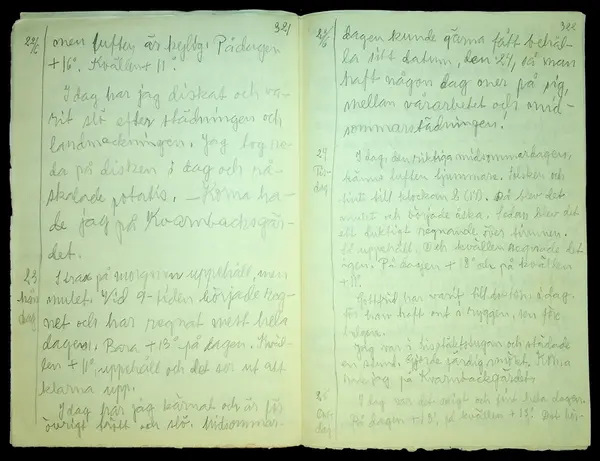 321
22/6
men luften är kylig. På dagen
+16°. Kvällen +11°.
I dag har jag diskat och va-
rit slö efter städningen och
Jag tog
da på disken i dag och
skalade potatis. – Korna ha-
de jag på Kvarnbacksgär-
det.
23
I dag på morgonen uppehåll, men
mulet. Vid 9-tiden började reg-
net och har regnat mest hela
dagen. Bara +13° på dagen. Kväl-
len +11°, uppehåll och det ser ut att
klarna upp.
I dag har jag kärnat och är för
övrigt trött och slö. Midsommar-
322
23/6
dagen kunde gärna fått behål-
la sitt datum, den 24, så man
haft någon dag mer på sig,
mellan vårarbetet och mid-
sommarstädningen!
24
Tors-
dag
I dag, den riktiga midsommardagen,
kändes luften ljummare. Solsken och
fint till klockan Då blev det
mulet och började åska. Sedan blev det
ett duktigt regnande över timmen.
Ett uppehåll. Och kvällen regnade det
igen. På dagen +18° och på kvällen
+11°.
Gottfrid har varit till doktorn i dag.
för han haft ont i ryggen, en för-
Jag var i och städade
en stund. Gjorde färdig mycket. Korna
hade jag på Kvarnbacksgärdet.
25
I dag var det soligt och fint hela dagen.
På dagen +19°, på kvällen +13°. Det bör-